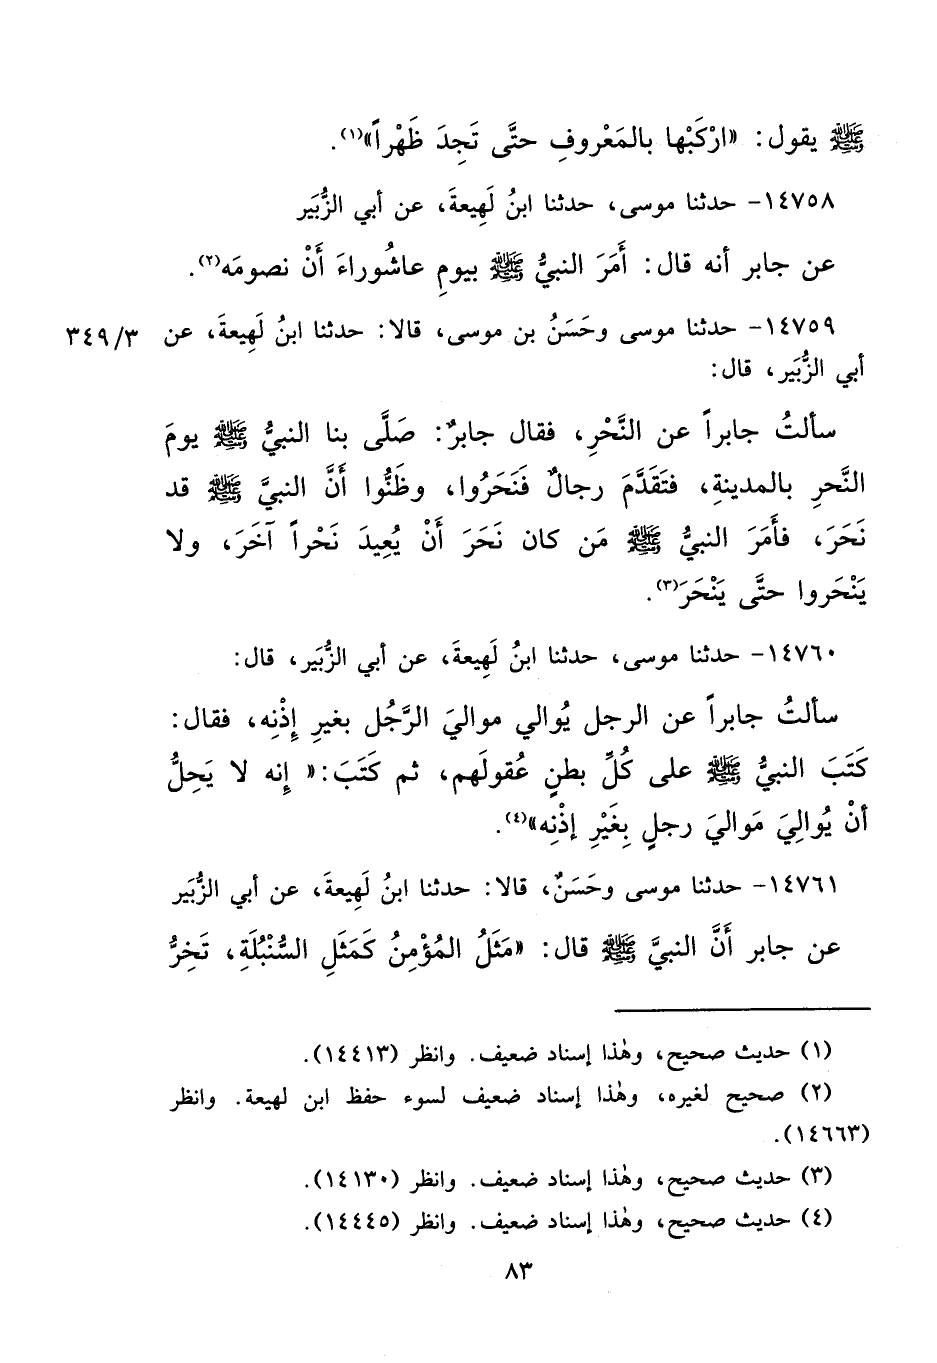 ﷺ يقول: «ارْكَبْها بالمَعْروفِ حتَّى تَجِدَ ظَهْراً»(١).
١٤٧٥٨- حدثنا موسى، حدثنا ابنُ لَهِيعةَ، عن أبي الزُّبَير
عن جابر أنه قال: أَمَرَ النبيُّ ﷺ بيومِ عاشُوراءَ أَنْ نصومَه(٢).
١٤٧٥٩- حدثنا موسى وحَسَنُ بن موسى، قالا: حدثنا ابنُ لَهِيعةَ، عن ٣٤٩/٣
أبي الزُّبَير، قال:
سألتُ جابراً عن النَّحْرِ، فقال جابرٌ: صَلَّى بنا النبيُّ ﷺ يومَ
النَّحرِ بالمدينةِ، فتَقَدَّمَ رجالٌ فَنَحَرُوا، وظَنُّوا أَنَّ النبيَّ ﷺ قد
نَحَرَ، فأَمَرَ النبيُّ ﷺ مَن كان نَحَرَ أَنْ يُعِيدَ نَحْراً آخَرَ، ولا
يَنْحَروا حتَّى يَنْحَرَ(٣).
١٤٧٦٠- حدثنا موسى، حدثنا ابنُ لَهِيعةَ، عن أبي الزُّبَير، قال:
سألتُ جابراً عن الرجل يُوالي مواليَ الرَّجُل بغيرِ إِذْنِه، فقال:
كَتَبَ النبيُّ ﷺ على كُلِّ بطنٍ عُقولَهم، ثم كَتَبَ: «إِنه لا يَحِلُّ
أنْ يُوالِيَ مَواليَ رجلٍ بِغَيْرِ إذْنِه»(٤).
١٤٧٦١- حدثنا موسى وحَسَنٌ، قالا: حدثنا ابنُ لَهِيعةَ، عن أبي الزُّبَير
عن جابر أَنَّ النبيَّ ﷺ قال: «مَثَلُ المُؤْمِنُ كَمَثَلِ السُّنْبُلَةِ، تَخِرُّ
(١) حديث صحيح، وهٰذا إسناد ضعيف. وانظر (١٤٤١٣).
(٢) صحيح لغيره، وهٰذا إسناد ضعيف لسوء حفظ ابن لهيعة. وانظر
(١٤٦٦٣).
(٣) حديث صحيح، وهٰذا إسناد ضعيف. وانظر (١٤١٣٠).
(٤) حديث صحيح، وهٰذا إسناد ضعيف. وانظر (١٤٤٤٥).
٨٣